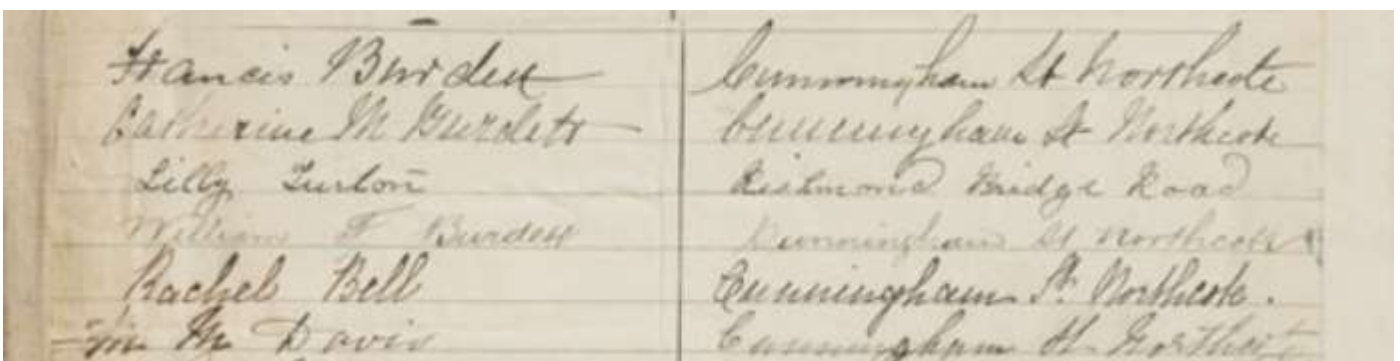 Francis Burdett Cunningham St Northcote
Catherine M Burdett Cunningham St Northcote
Lilly Turton Richmond Bridge Road
William F Burdett Cunningham St Northcote
Rachel Bell Cunningham St. Northcote.
M Davis Cunningham St Northcote